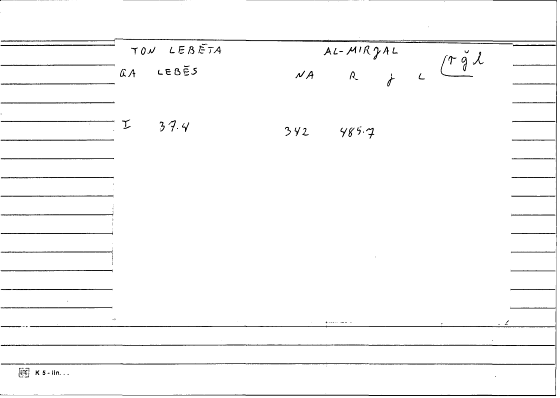 TON LEBĒTA AL-MIRJAL
GA LEBĒS NA R J L rǧl
I 37.4 342 485.7
K 5 - lin...